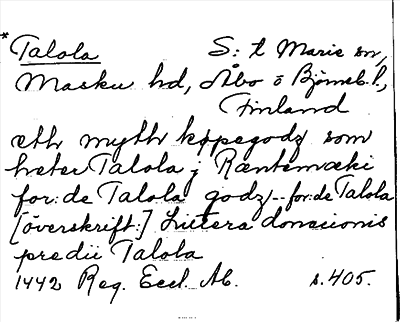 * Talola S:t Marie sn,
Masku hd, Åbo o Björneb. l.,
Finland
eth myth køpegodz som
heter Talola j Ræntemæki
for:de Talola godz -- for:de Talola
[överskrift:] Littera donacionis
predii Talola
1442 Reg. Eccl. Ab. s. 405.